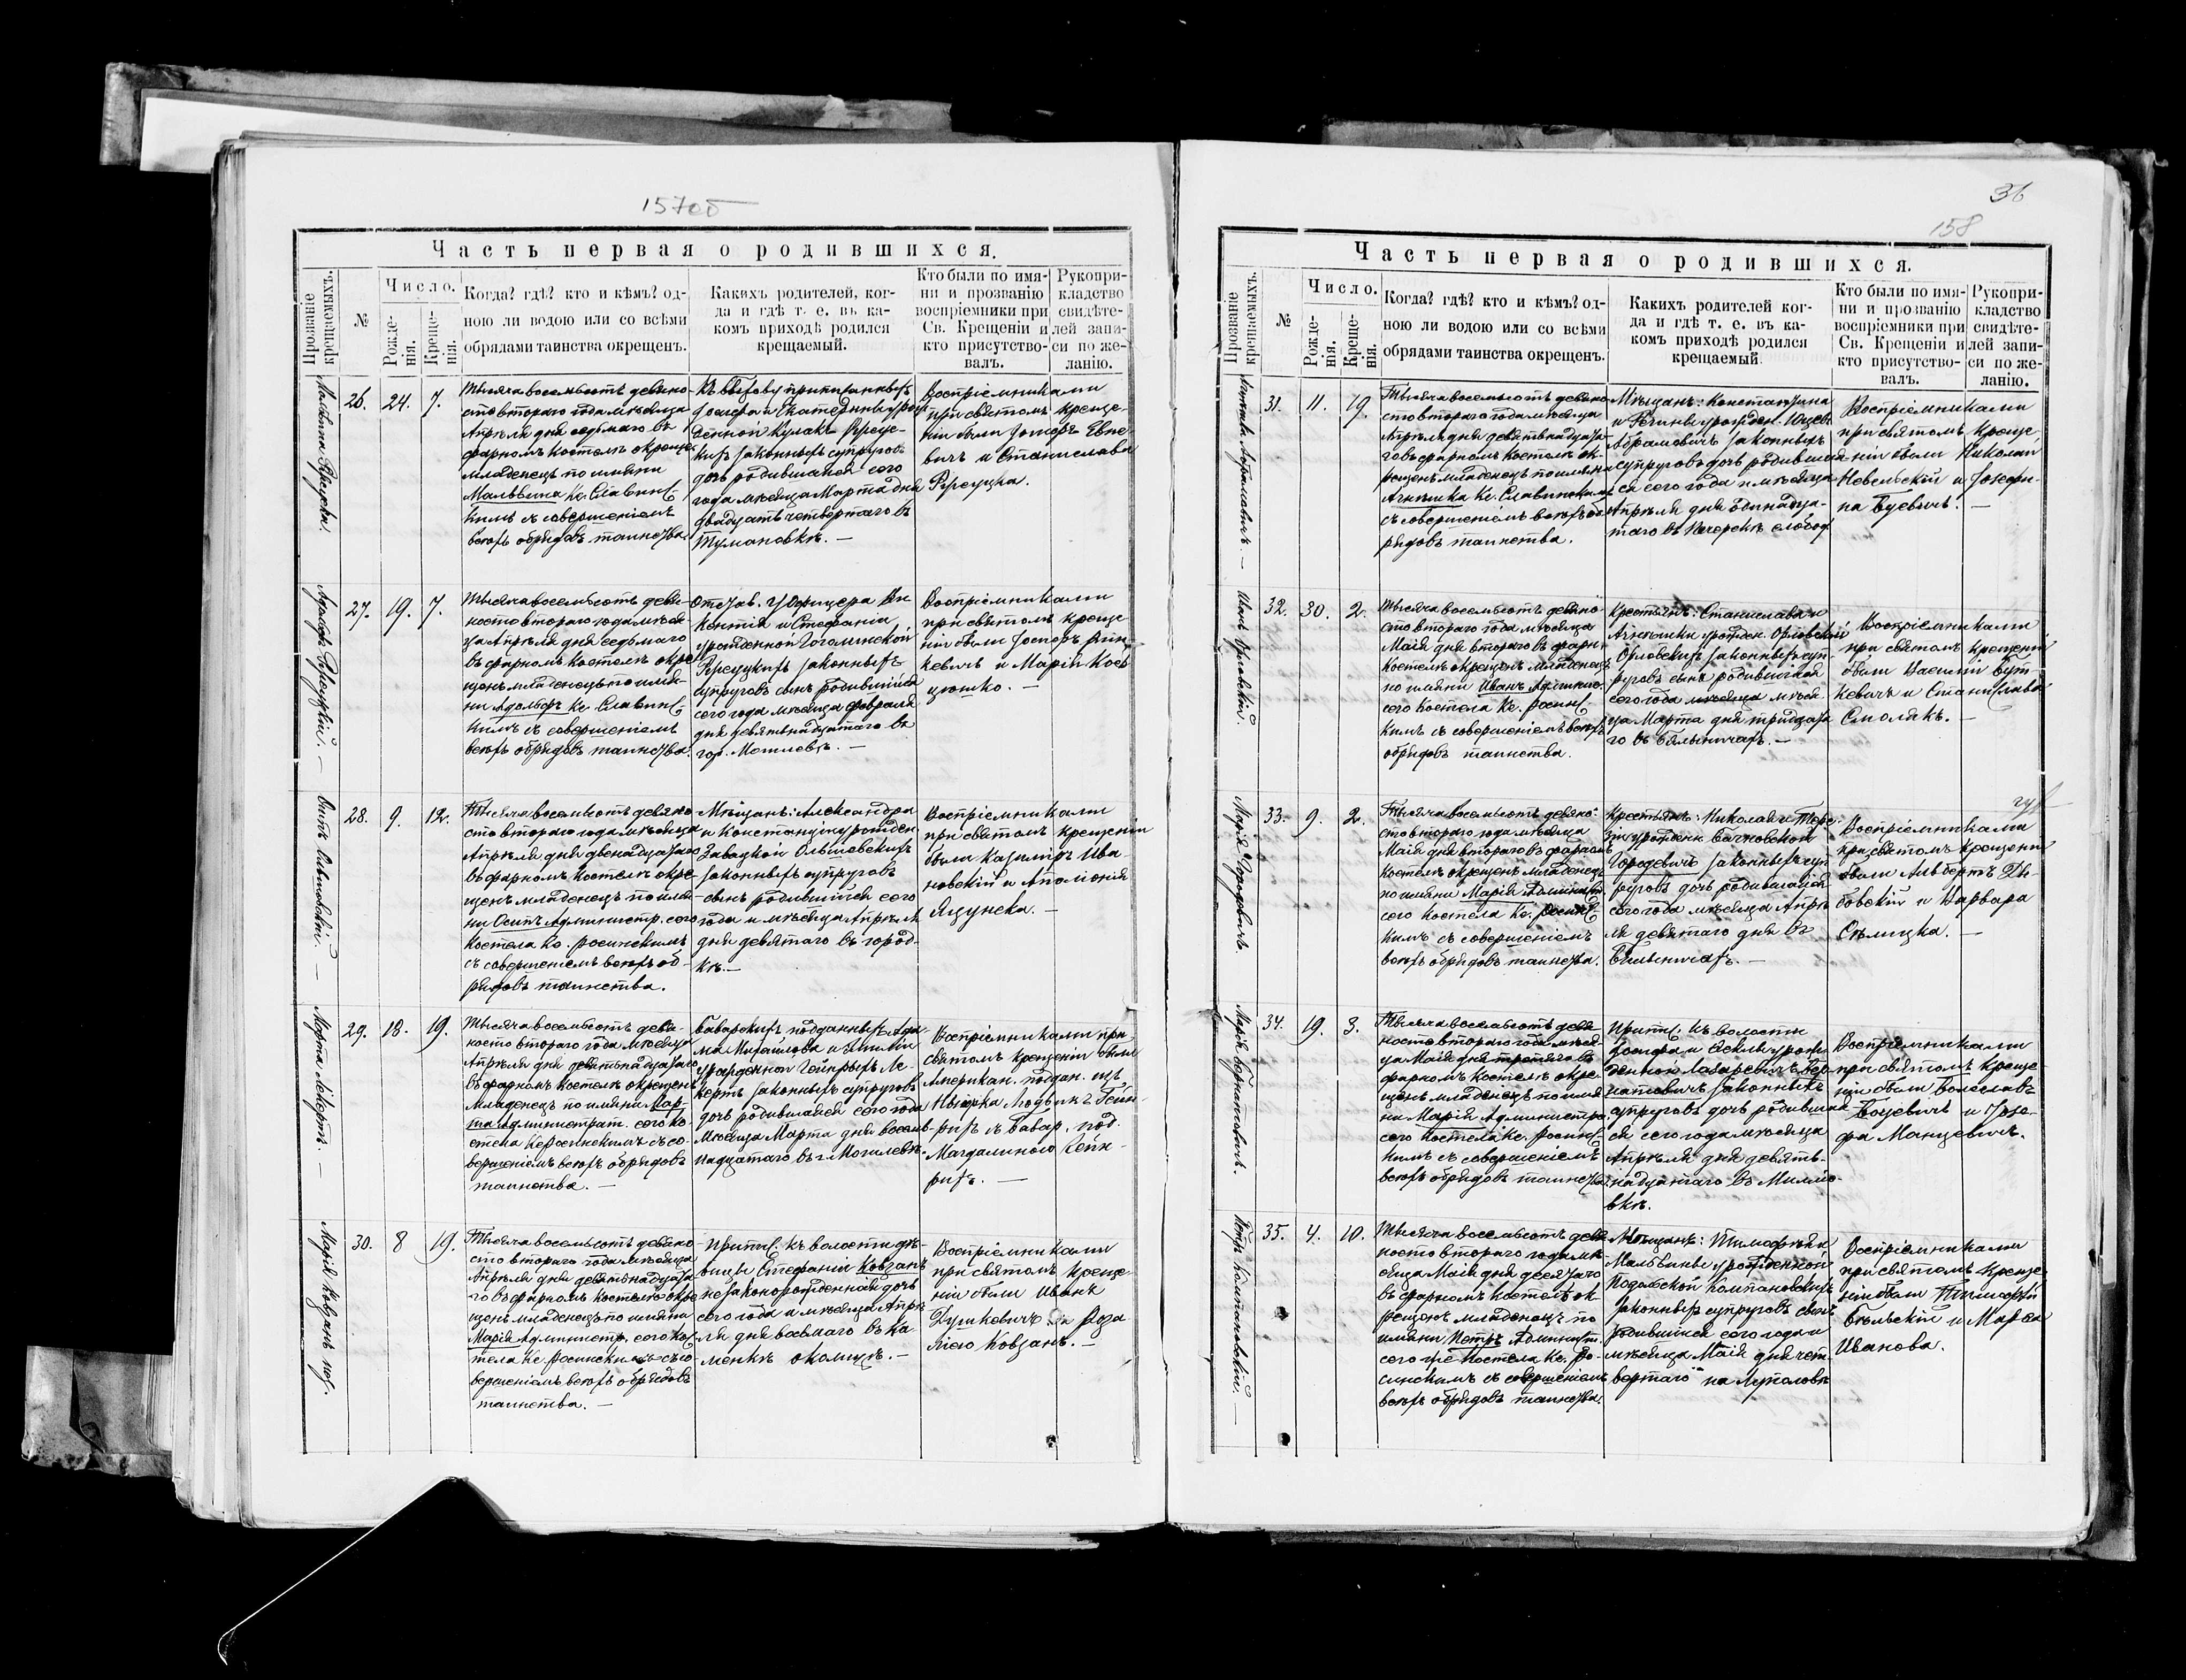 157об
Часть первая о родившихся.
Прозваніе крещаемыхъ.
№
Число.
Рожде-
нія.
Креще-
нія.
Когда? гдѣ? кто и кѣмъ? од-
ною ли водою или со всѣми
обрядами таинства окрещенъ.
Какихъ родителей, ког-
да и гдѣ т. е. въ ка-
комъ приходѣ родился
крещаемый.
Кто были по имя-
ни и прозванію
воспріемники при
Св. Крещеніи и
кто присутство-
валъ.
Рукопри-
кладство
свидѣте-
лей запи-
си по же-
ланію.
26. 24. 7.
Тысяча восемьсотъ девяно-
сто втораго года мѣсяца
Апрѣля дня седьмаго въ
фарномъ костелѣ окрещенъ
младенецъ по имяни
Мальвина Кс. Славинс
кимъ съ совершеніемъ
всѣхъ обрядовъ таинства.
Іосифа и Екатерины урож
денной Кулакъ
кихъ законныхъ супруговъ
дочь родившаяся сего
года мѣсяца Марта дня
двадцать четвертаго въ
Тумановкѣ. —
Воспріемниками
при святомъ креще-
ніи были Іосифъ
и Станислава
27. 19. 7.
Тысяча восемьсотъ девя-
носто втораго года мѣся-
ца Апрѣля дня седьмаго
въ фарномъ костелѣ окре
щенъ младенецъ по имя-
ни Адольфъ Кс. Славинс-
кимъ съ совершеніемъ
всѣхъ обрядовъ таинства.
Отстав. у. офицера Ви
кентія и Стефаніи
урожденной
законныхъ
супруговъ сынъ родившійся
сего года мѣсяца февраля
дня девятьнадцатаго въ
гор. Могилевѣ. —
Воспріемниками
при святомъ креще
ніи были Іосифъ
кевичъ и Марія Кос
цюшко. —
28. 9. 12.
Тысяча восемьсотъ девяно
сто втораго года мѣсяца
Апрѣля дня двенадцатаго
въ фарномъ костелѣ окре-
щенъ младенецъ по имя-
ни Осипъ Администр. сего
костела Кс. Росинскимъ
съ совершеніемъ всѣхъ об-
рядовъ таинства.
Мѣщанъ: Александра
и Констанціи урожден
Завацкой Ольшевскихъ
законныхъ супруговъ
сынъ родившійся сего
года и мѣсяца Апрѣля
дня девятаго въ город-
кѣ. —
Воспріемниками
при святомъ крещеніи
были Казиміръ Ива-
новскій и Аполонія
Яцунска. —
Марта Лекертъ. —
29. 18. 19.
Тысяча восемьсотъ девя-
носто втораго года мѣсяца
Апрѣля дня девятьнадцатаго
въ фарномъ костелѣ окрещенъ
младенецъ по имяни Мар-
та Администрат. сего ко-
стела Кс Росинскимъ съ со-
вершеніемъ всѣхъ обрядовъ
таинства. —
Баварскихъ подданныхъ Ада-
ма Михайлова и Емиліи
урожденной Гейнрихъ Ле-
кертъ законныхъ супруговъ
дочь родившаяся сего года
мѣсяца Марта дня восемь-
надцатаго въ г. Могилевѣ.
Воспріемниками при
святомъ крещеніи были
Американ. поддан. изъ
Нью-Іорка Людвикъ Гейн-
рихъ съ Бавар. под.
Магдалиною Гейн-
рихъ. —
Марія Ковзанъ
30. 8 19.
Тысяча восемьсотъ девяно
сто втораго года мѣсяца
Апрѣля дня девятьнадцата
го въ фарномъ костелѣ окре
щенъ младенецъ по имяни
Марія Администр. сего кос
тела Кс. Росинскимъ съ со-
вершеніемъ всѣхъ обрядовъ
таинства. —
Припис. къ волости дѣ-
вицы Стефаніи Ковзанъ
незаконорожденная дочь
сего года и мѣсяца Апрѣ
ля дня восьмаго въ Ка
менкѣ околицѣ. —
Воспріемниками
при святомъ креще-
ніи были Иванъ
Душкевичъ съ Роза
ліею Ковзанъ. —
36
158
Часть первая о родившихся.
Прозваніе крещаемыхъ.
№
Число.
Рожде-
нія.
Креще-
нія.
Когда? гдѣ? кто и кѣмъ? од-
ною ли водою или со всѣми
обрядами таинства окрещенъ.
Какихъ родителей ког-
да и гдѣ т. е. въ ка-
комъ приходѣ родился
крещаемый
Кто были по имя-
ни и прозванію
воспріемники при
Св. Крещеніи и
кто присутство-
валъ.
Рукопри-
кладство
свидѣте-
лей запи-
си по же-
ланію.
Агнешка Абрамовичъ. —
31. 11. 19.
Тысяча восемьсотъ девяно
сто втораго года мѣсяца
Апрѣля дня девятьнадцата-
го въ фарномъ костелѣ ок-
рещенъ младенецъ по имяни
Агнешка Кс. Славинскимъ
съ совершеніемъ всѣхъ об-
рядовъ таинства.
Мѣщанъ: Константина
и Регины урожден.
Абрамовичъ законныхъ
супруговъ дочь родившая
ся сего года и мѣсяца
Апрѣля дня одинадца-
таго въ Печерскѣ слобод
Воспріемниками
при святомъ креще
ніи были Николай
Невельскій и Іозефи-
на Буевичъ. —
Иванъ Орловскій.
32. 30. 2.
Тысяча восемьсотъ девяно
сто втораго года мѣсяца
Маія дня втораго въ фарн
костелѣ окрещенъ младенецъ
по имяни Иванъ Админис.
сего костела Кс. Росинс
кимъ съ совершеніемъ всѣхъ
обрядовъ таинства.
Крестьянъ: Станислава и
Агнешки урожден. Орловской
Орловскихъ законныхъ суп-
руговъ сынъ родившійся
сего года мѣсяца мѣся-
ца Марта дня тридцата
го въ Бѣлыничахъ. —
Воспріемниками
при святомъ крещеніи
были Василій Бут-
кевичъ и Станислава
Смолякъ. —
Марія Городевичъ.
33. 9. 2.
Тысяча восемьсотъ девяно-
сто втораго года мѣсяца
Маія дня втораго въ фарномъ
костелѣ окрещенъ младенецъ
по имяни Марія Админист.
сего костела Кс. Росинс-
кимъ съ совершеніемъ
всѣхъ обрядовъ таинства.
Крестьянъ: Николая и Тере-
зіи урожденн. Бачковской
Городевичъ законныхъ суп
руговъ дочь родившаяся
сего года мѣсяца Апрѣ
ля девятаго дня въ
Воспріемниками
при святомъ крещеніи
были Альбертъ Ды-
бовскій и Варвара
Сѣлицка. —
34. 19. 3.
Тысяча восемьсотъ девя
носто втораго года мѣся-
ца Маія дня третяго въ
фарномъ костелѣ окре-
щенъ младенецъ по имя
ни Марія Администра.
сего костела Кс. Росинс-
кимъ съ совершеніемъ
всѣхъ обрядовъ таинства.
Припис. къ волости
Іосифа и Теклы урож-
денной Лазаревичъ Бер-
натовичъ законныхъ
супруговъ дочь родивша
ся сего года мѣсяца
Апрѣля дня девять-
надцатаго въ Милло-
вкѣ.
Воспріемниками
при святомъ креще-
ніи были Болеславъ
Боцевичъ и Юзе-
фа Манцевичъ.
Петръ Компановскій. —
35. 4. 10.
Тысяча восемьсотъ девя
носто втораго года мѣ-
сяца Маія дня десятаго
въ фарномъ костелѣ ок-
рещенъ младенецъ по
имяни Петръ Админист.
сего же костела Кс. Ро-
синскимъ съ совершеніемъ
всѣхъ обрядовъ таинства.
Мѣщанъ: Тимофея и
Мальвины урожденной
Подобской Компановскихъ
законныхъ супруговъ сынъ
родившійся сего года и
мѣсяца Маія дня чет-
вертаго на Луполовѣ
Воспріемниками
при святомъ креще-
ніи были Тимофей
Бѣльскій и Марія
Иванова.